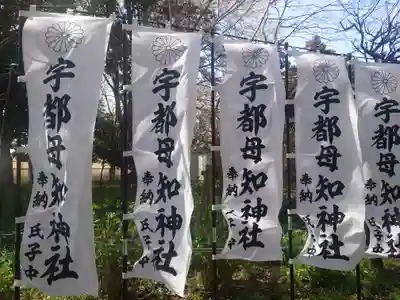 宇都母知神社
奉納 氏子中
宇都母知神社
奉納 氏子中
宇都母知神社
奉納 氏子中
宇都母知神社
奉納 氏子中
宇都母知神社
奉納 氏子中